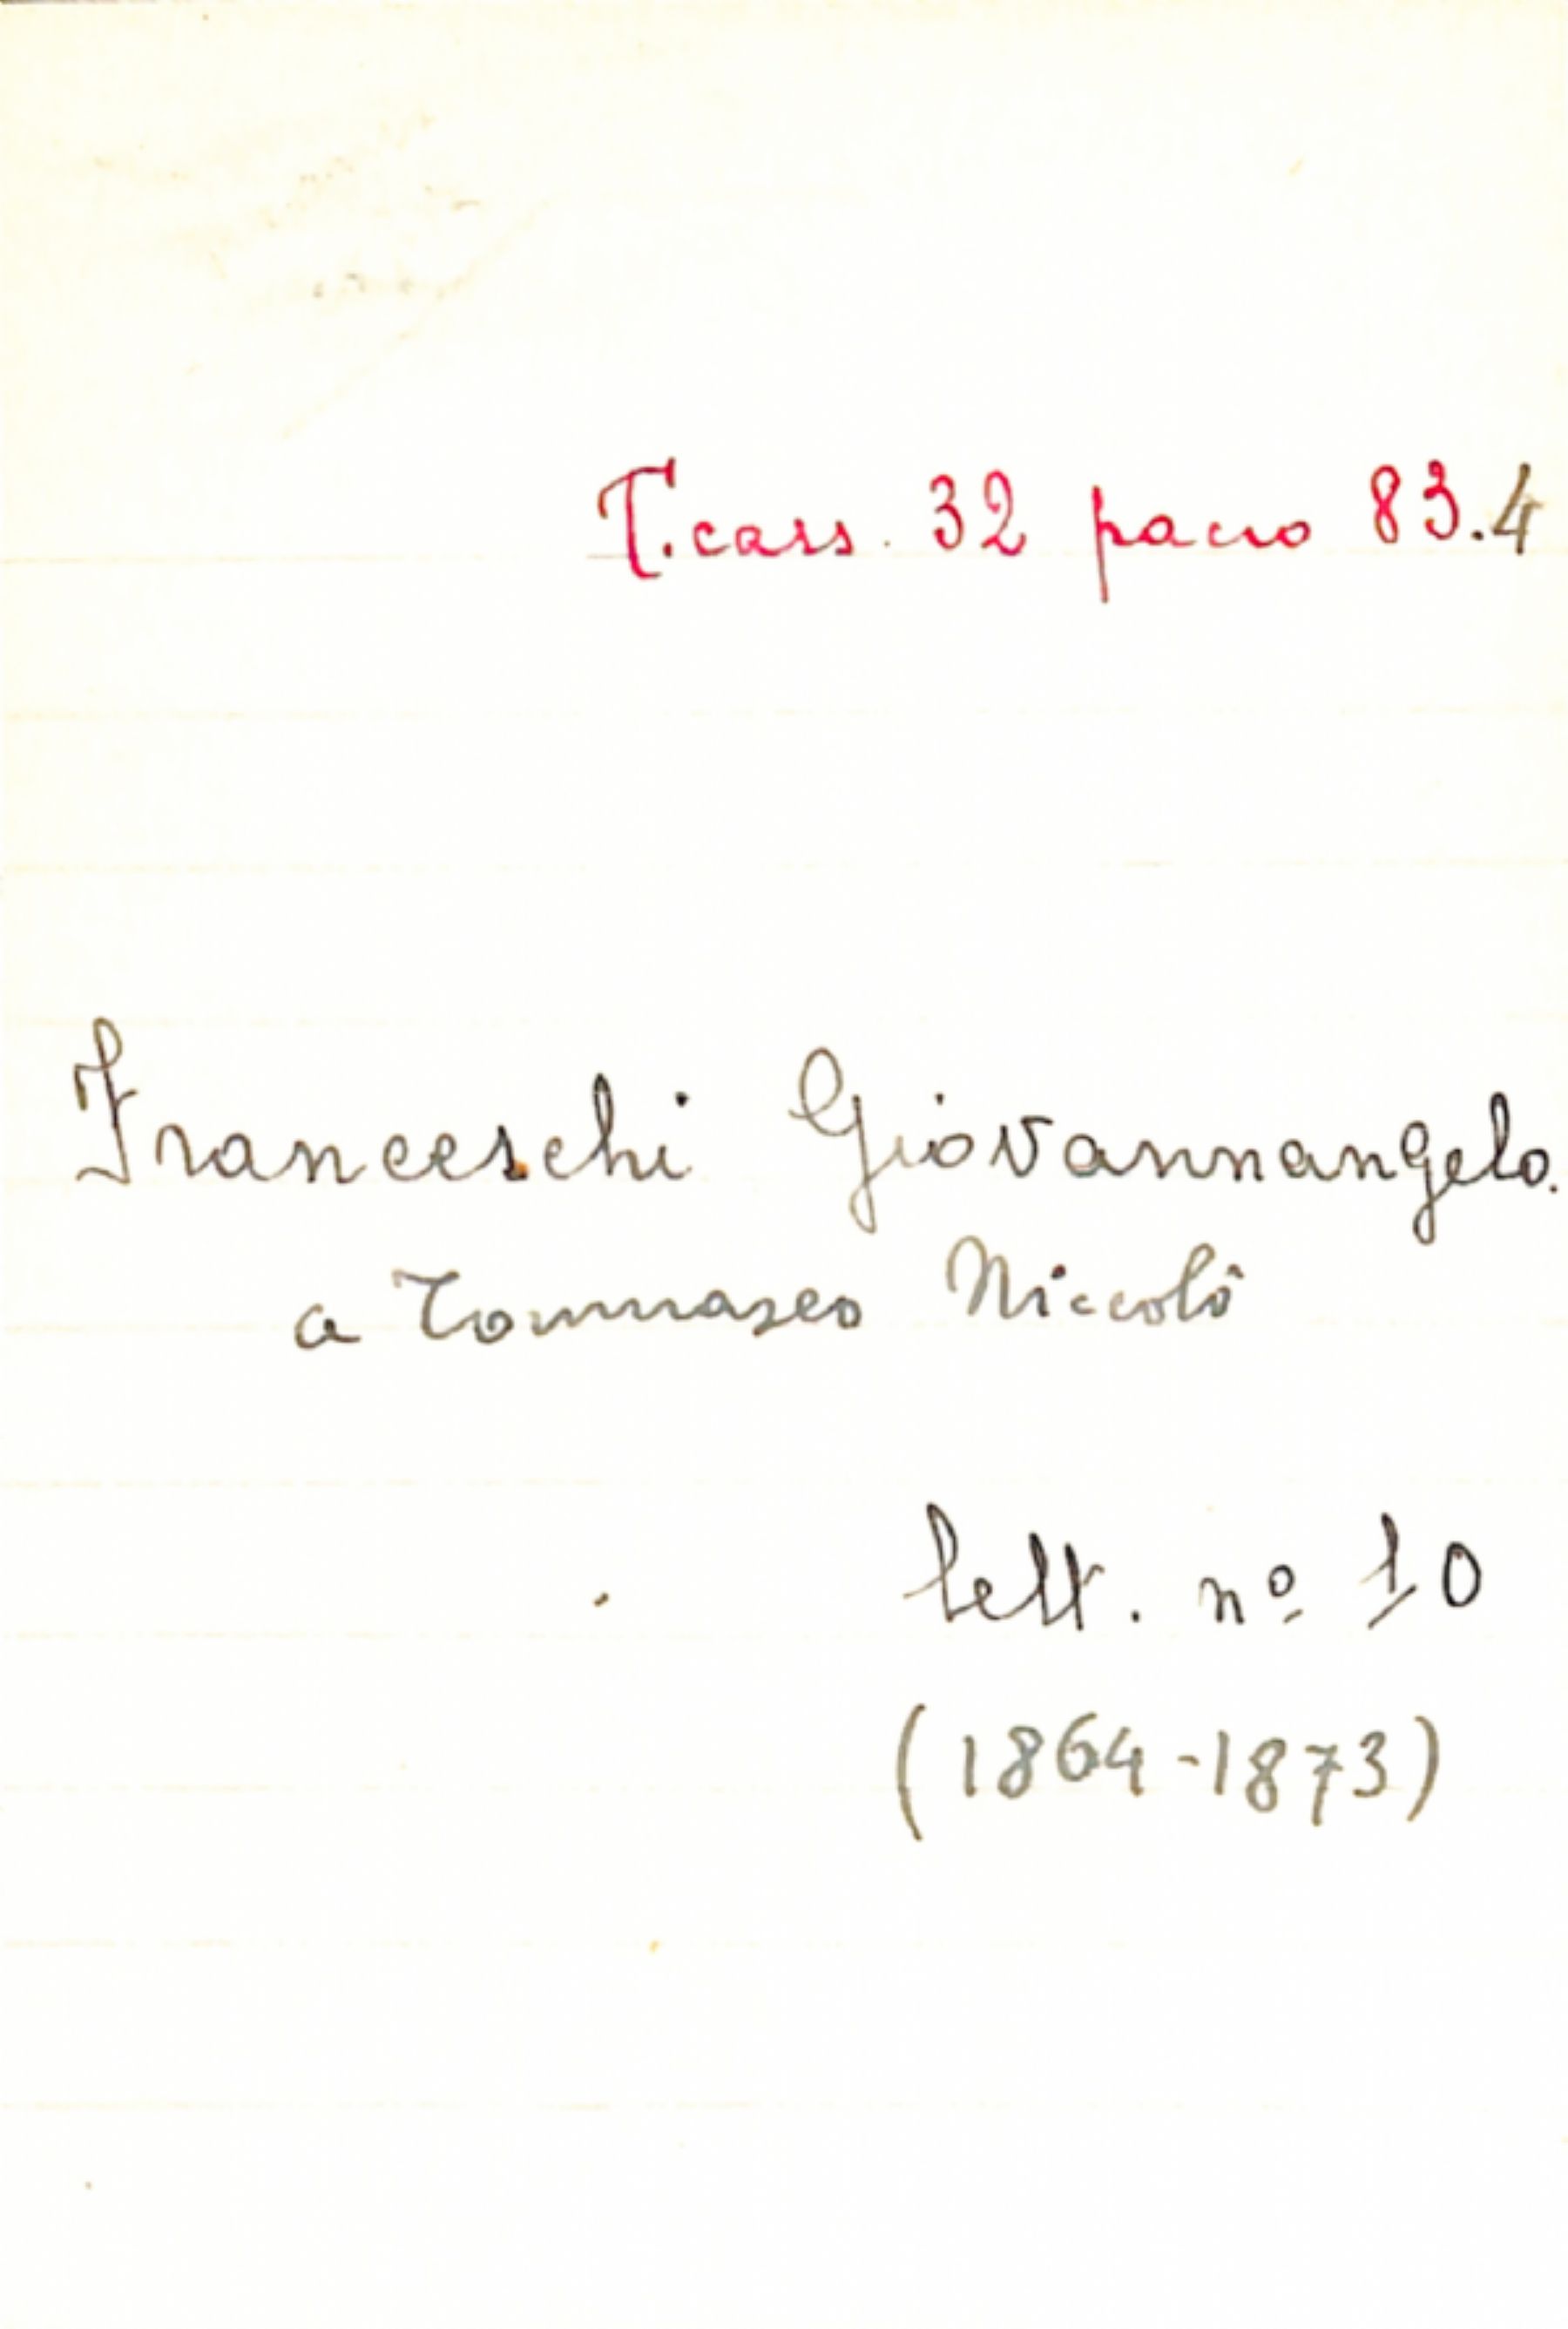 T. cass. 32 pacco 83.4
Franceschi Giovannangelo.
a Tommaseo Niccolò
lett. nº 10
(1864-1873)